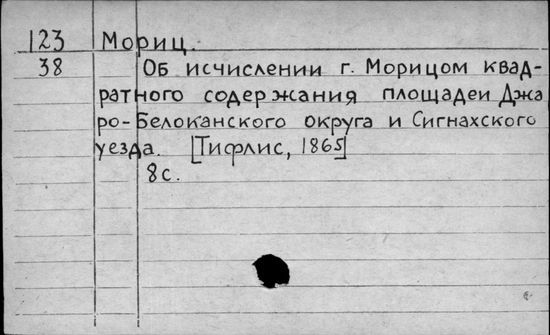 123 Мориц.
38 Об исчислении г. Морицом квад-
ратного содержания площадеи Джа
ро-Белоканского округа и Сигнахского
уезда. [Тифлис, 1865]
8с.